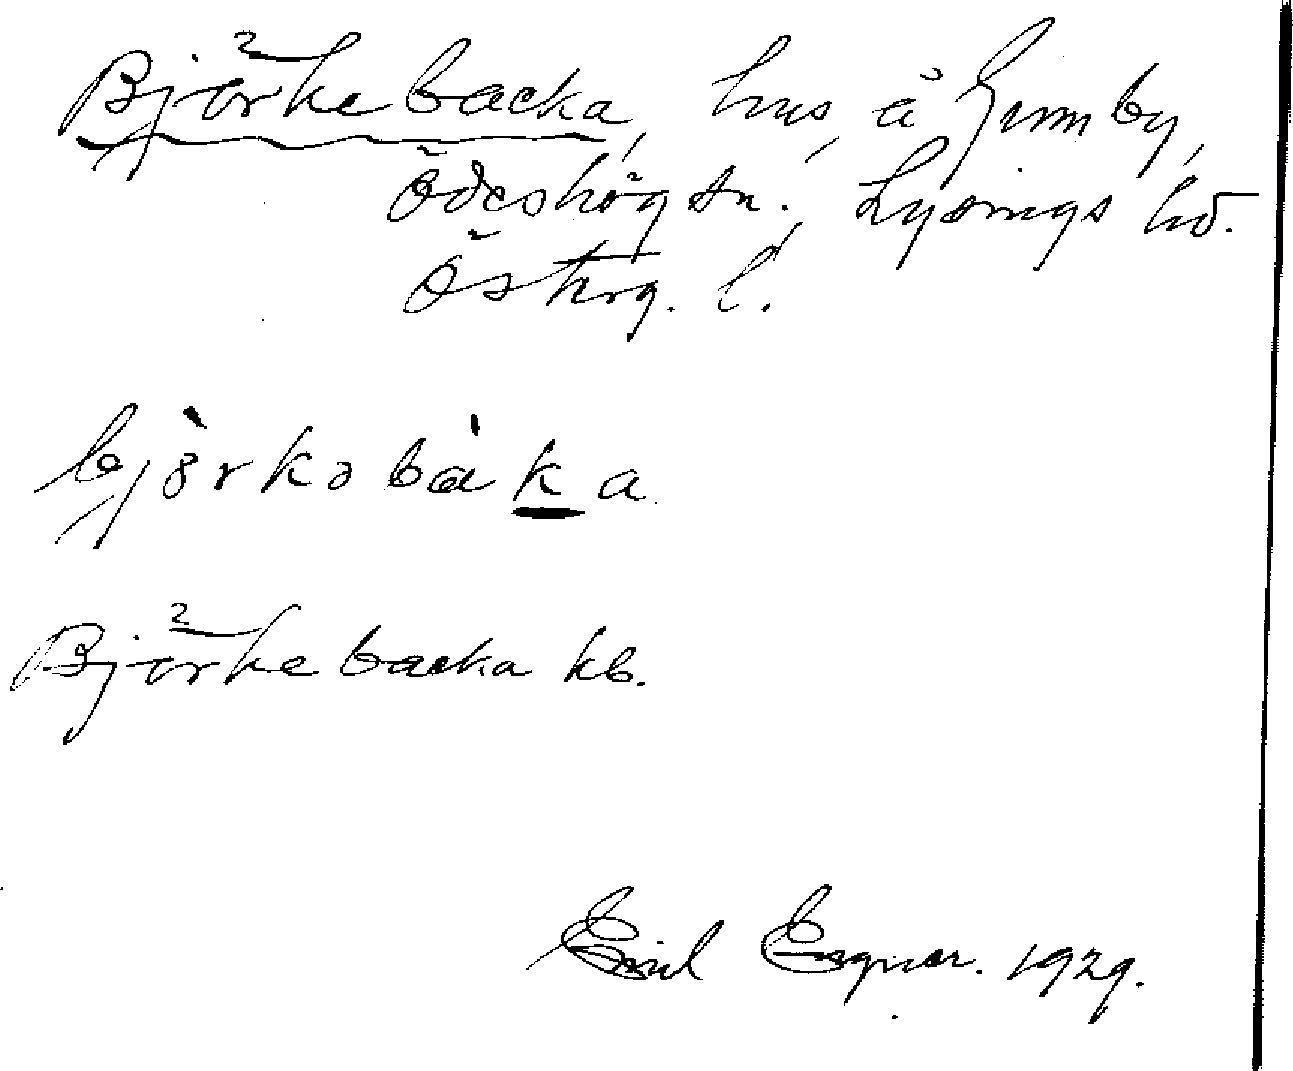 Björkebacka, hus, å Ginnby,
Ödeshög sn., Lysings hd.
Östrg. l.
bjòrkəbàka
Björkebacka kb.
Emil Egnér. 1929.